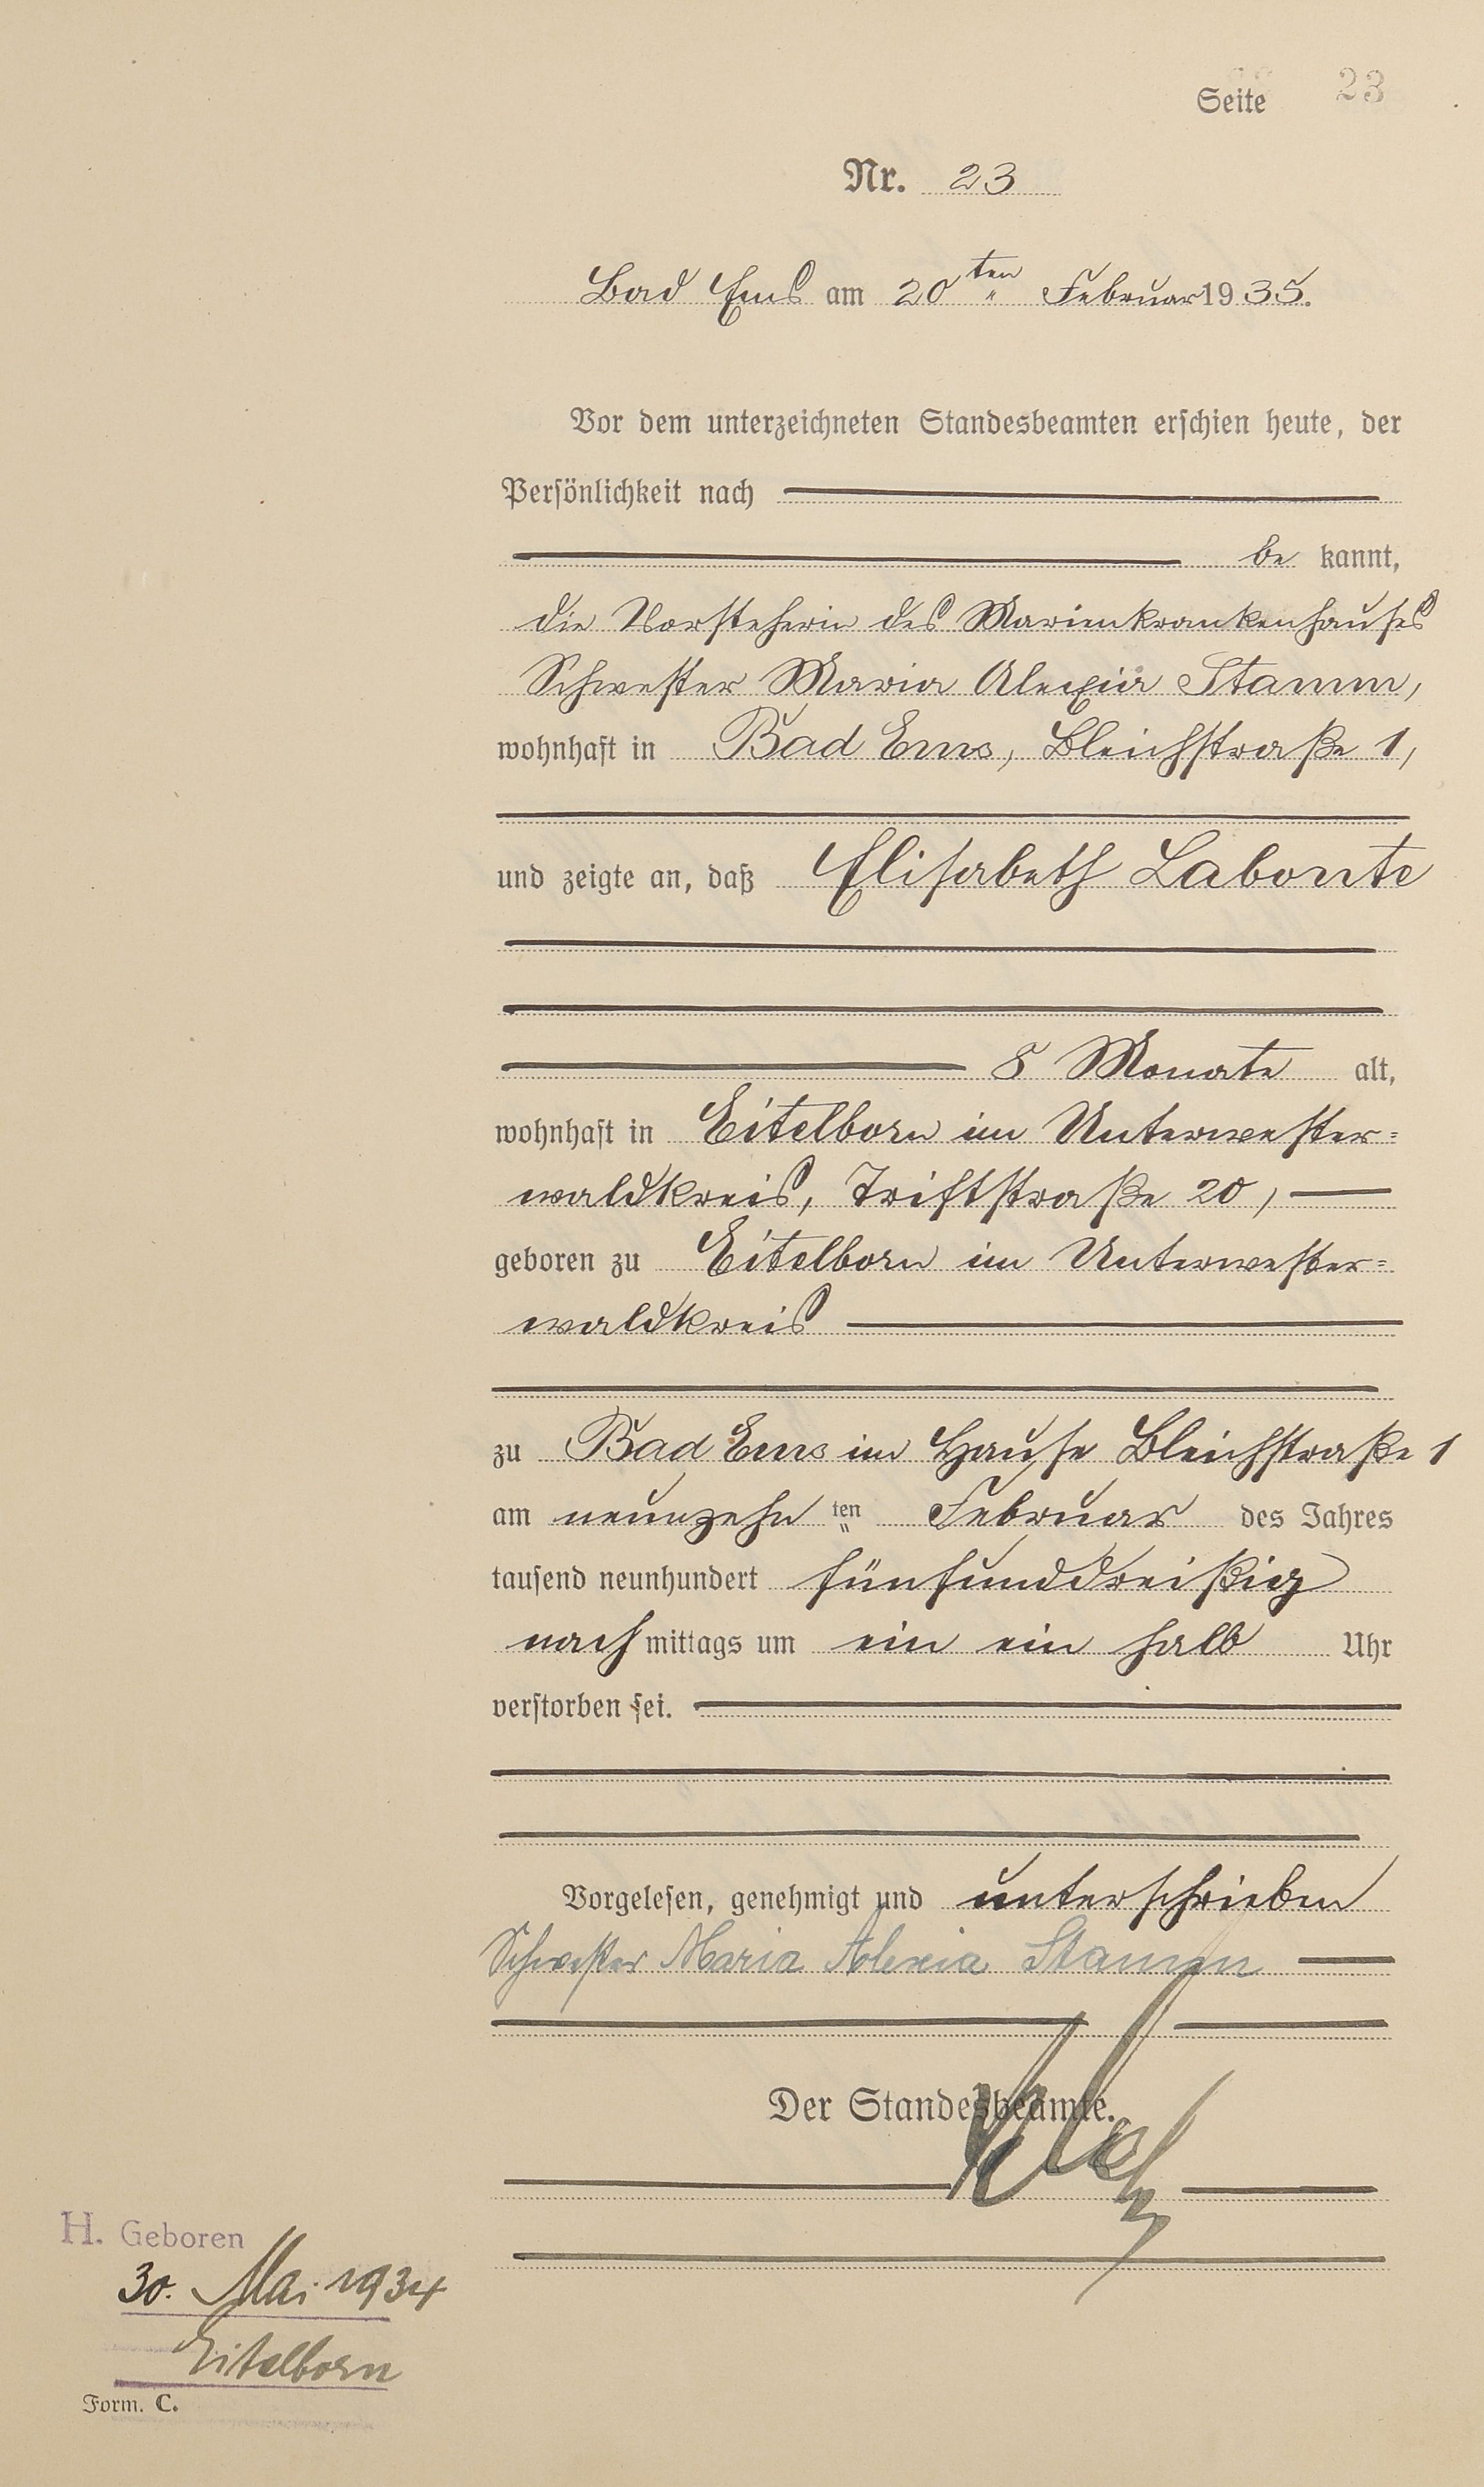 Seite 23
Nr. 23
Bad Ems am 20ten Februar 1935.
Vor dem unterzeichneten Standesbeamten erschien heute, der
Persönlichkeit nach
be kannt,
die Vorsteherin des Marienkrankenhauses
Schwester Maria Alexia Stamm,
wohnhaft in Bad Ems, Bleichstraße 1,
und zeigte an, daß Elisabeth Labonte
8 Monate alt,
wohnhaft in Eitelborn im Unterwester=
waldkreis, Triftstraße 20,
geboren zu Eitelborn im Unterwester=
waldkreis
zu Bad Ems im Hause Bleichstraße 1
am neunzehn ten Februar des Jahres
tausend neunhundert fünfunddreißig
nachmittags um ein ein halb Uhr
verstorben sei.
Vorgelesen, genehmigt und unterschrieben
Schwester Maria Alexia Stamm
Der Standesbeamte.
H. Geboren
30. Mai 1934
Eitelborn
Form. C.